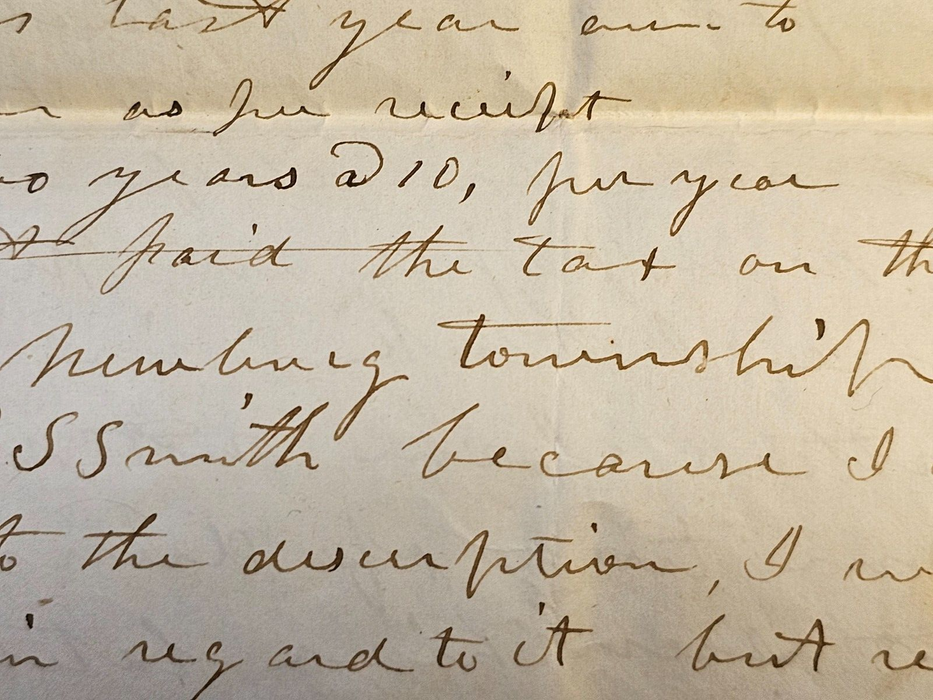 s last year am to
as per receipt
years @ 10, per year
t paid the tax on th
Newburg township
S Smith because I
to the discription, I w
in regard to it but re